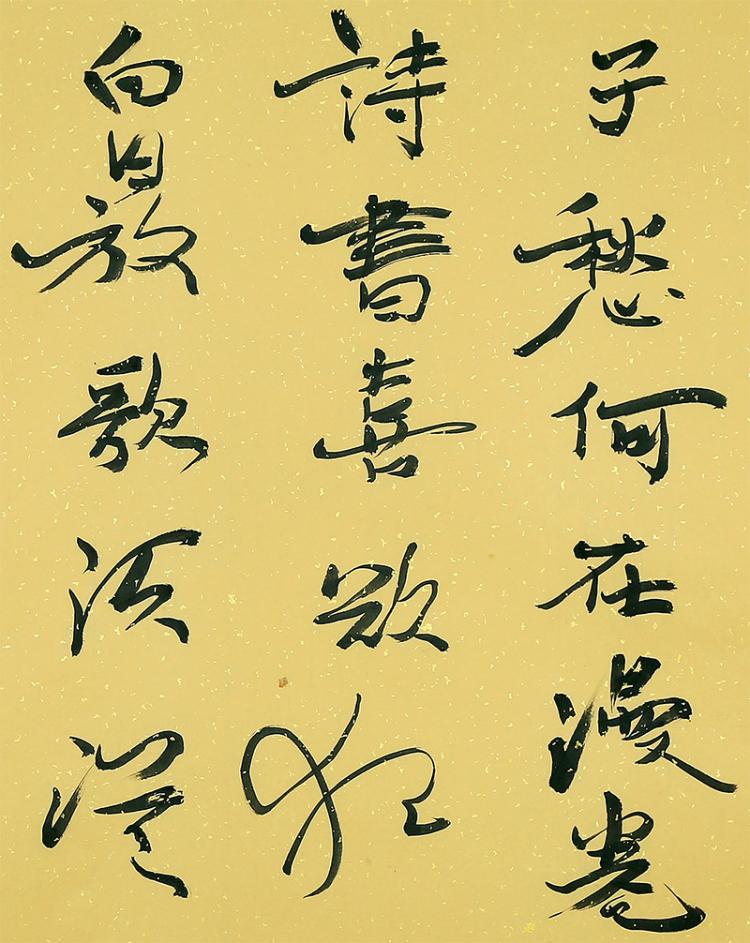 子愁何在漫卷
詩書喜欲狂
白日放歌須從